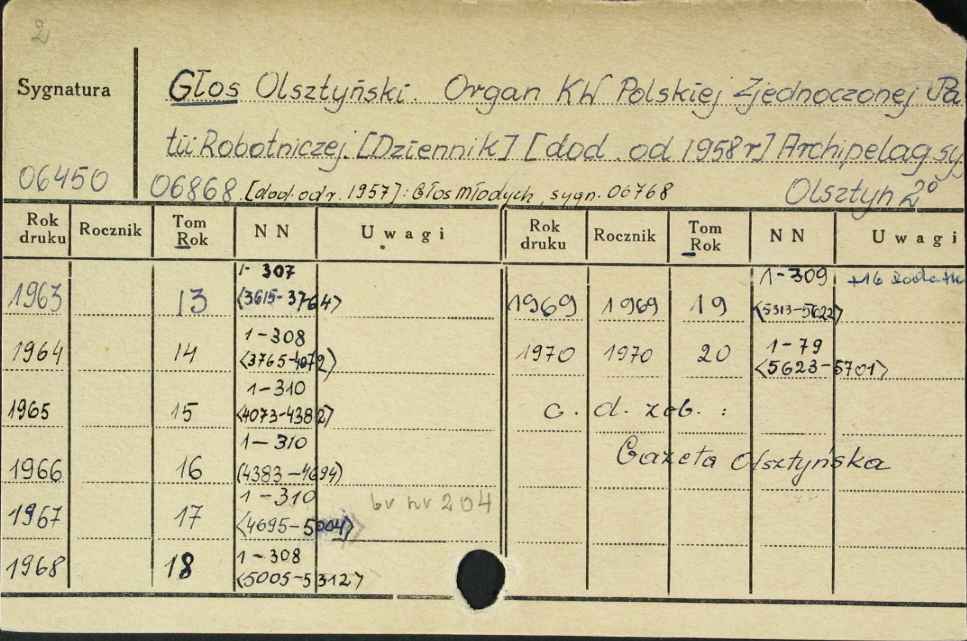 2
Sygnatura
Głos Olsztyński. Organ KW Polskiej Zjednoczonej Pa
tii Robotniczej. [Dziennik] [dod. od 1958 r] Archipelag sy
06450
06868. [dod. od r. 1957]: Głos młodych, sygn. 06768
Olsztyn 2º
Rok druku Rocznik Tom Rok NN Uwagi Rok druku Rocznik Tom Rok NN Uwagi
1963 13 1-307 <3615-3764>
1964 14 1-308 <3765-4072>
1965 15 1-310 <4073-4382>
1966 16 1-310 (4383-4694)
1967 17 1-310 <4695-5004> br nr 204
1968 18 1-308 <5005-5312>
1969 1969 19 1-309 <5313-5622> +16 dodatk
1970 1970 20 1-79 <5623-5701>
c. d. zob. :
Gazeta Olsztyńska